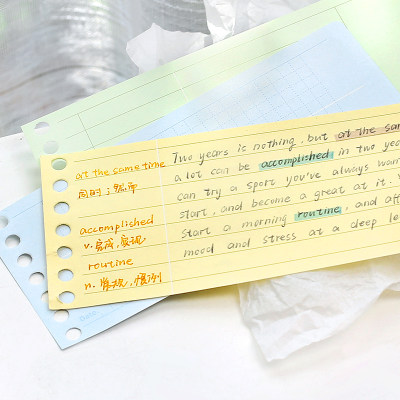 at the same time
同时；然而
accomplished
v. 完成，实现
routine
n. 常规，惯例
Two years is nothing, but at the sam
a lot can be accomplished in two yea
can try a sport you've always wan
start, and become a great at it.
start a morning routine, and aff
mood and stress at a deep le